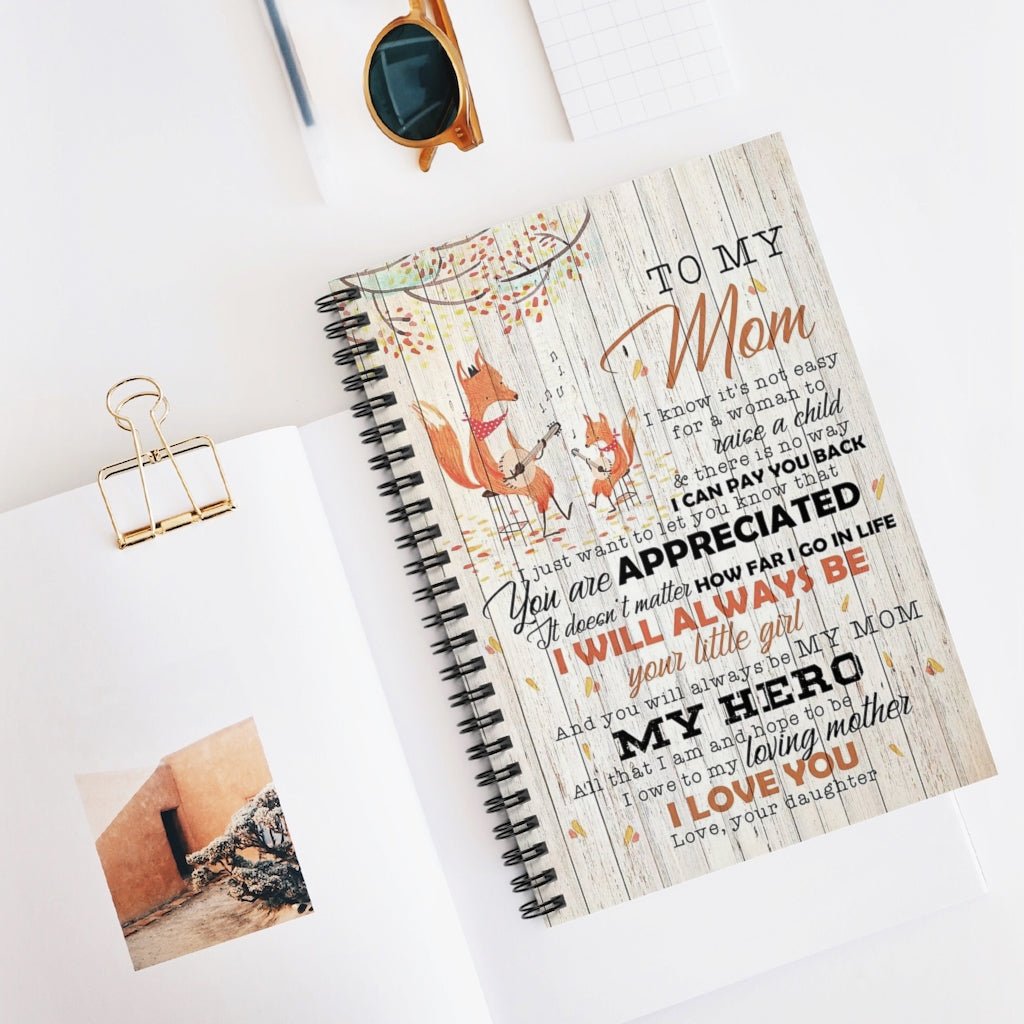 TO MY
Mom
I know it's not easy
for a woman to
raise a child
& there is no way
I CAN PAY YOU BACK
I just want to let you know that
You are APPRECIATED
It doesn't matter HOW FAR I GO IN LIFE
I WILL ALWAYS BE
your little girl
And you will always be MY MOM
MY HERO
All that I am and hope to be
I owe to my loving mother
I LOVE YOU
Love, your daughter